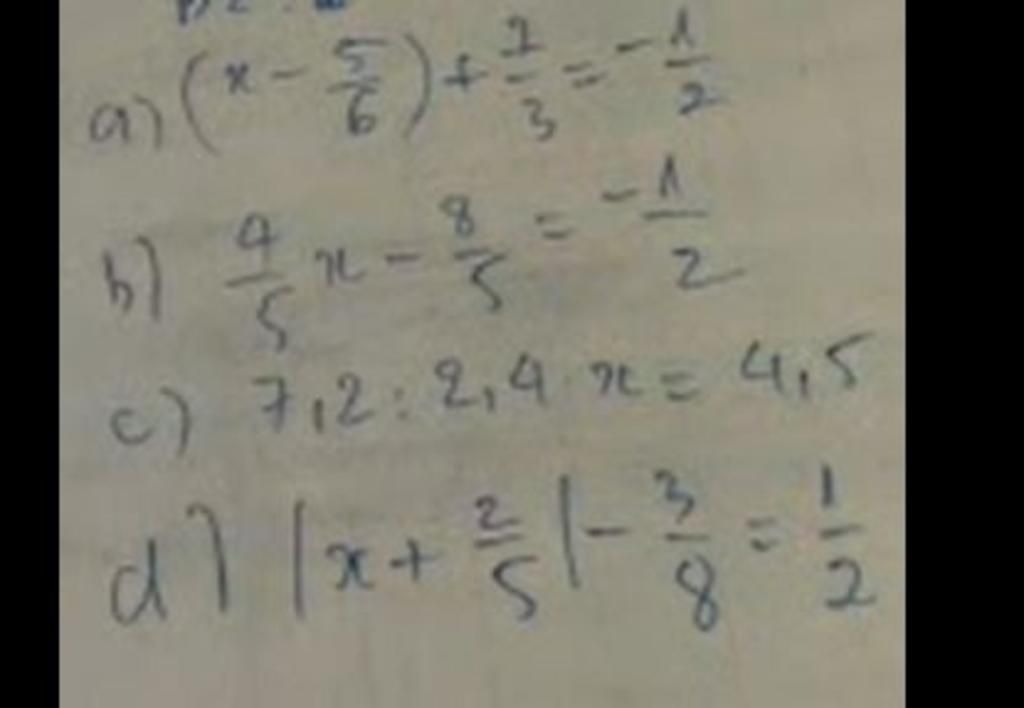 a) (x - 5/6) + 7/3 = -1/2
b) 4/5 x - 8/5 = -1/2
c) 7,2 : 2,4 . x = 4,5
d) |x + 2/5| - 3/8 = 1/2